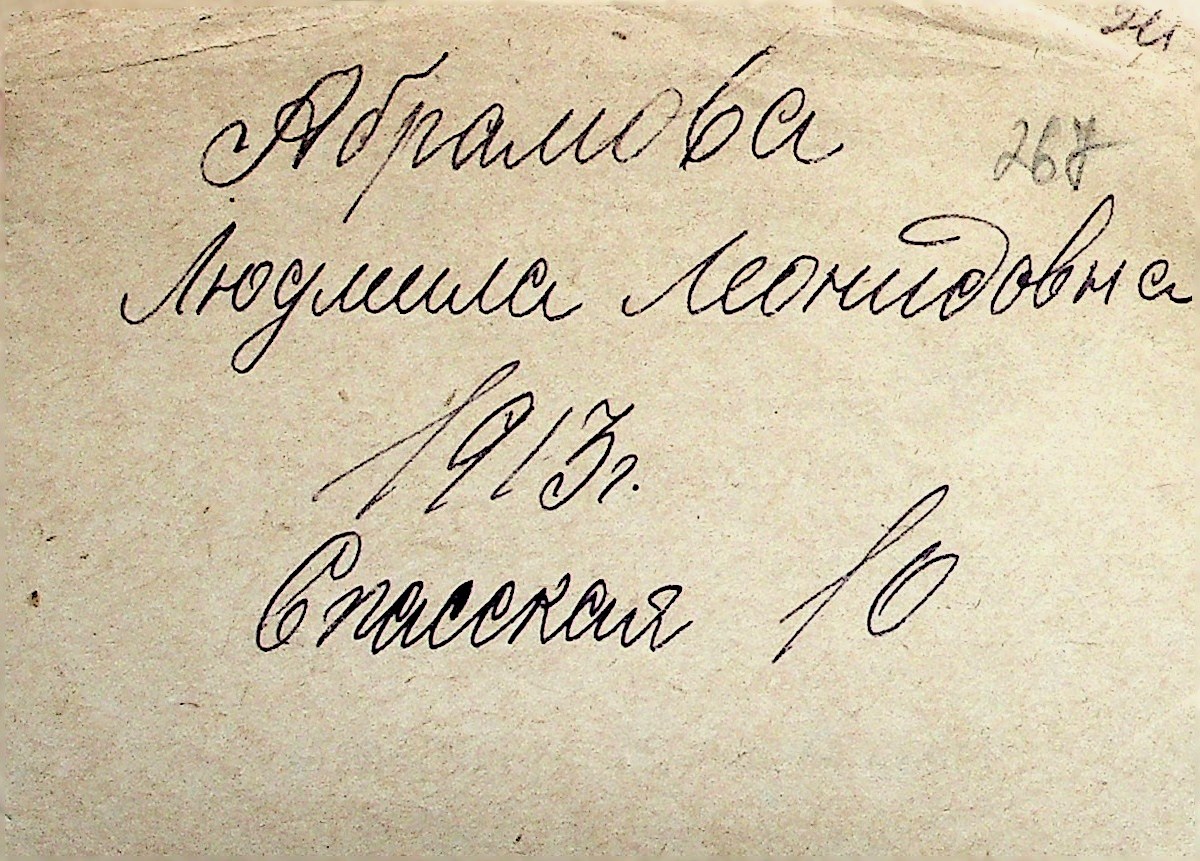 Абрамова
267
Людмила Леонидовна
1913г.
Спасская 10